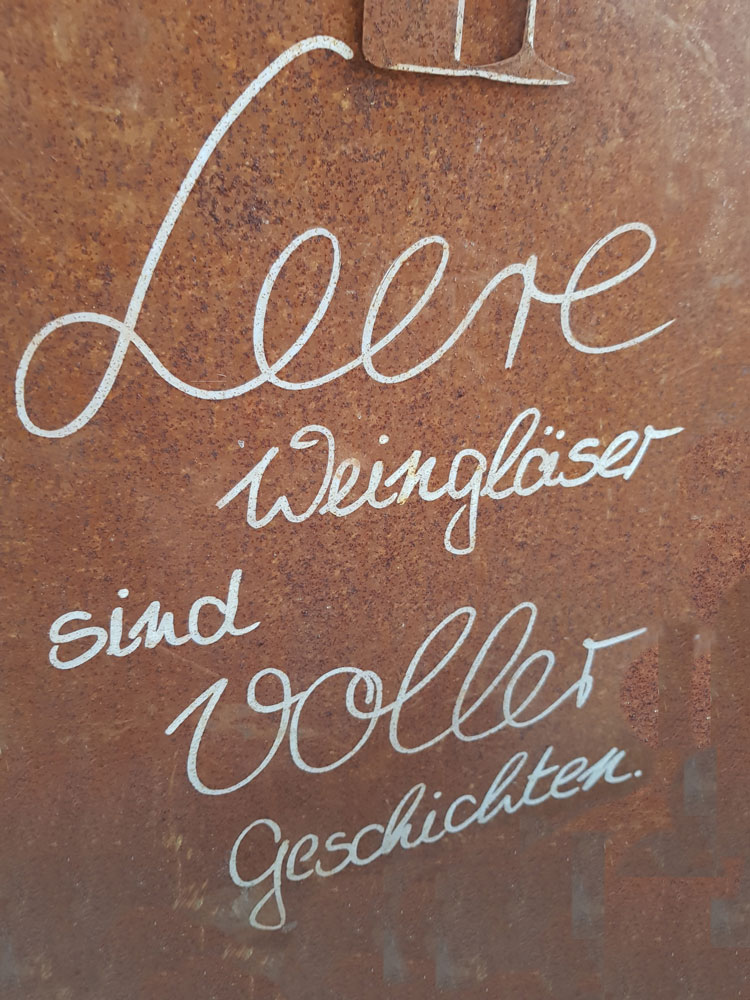 Leere
Weingläser
sind
voller
Geschichten.